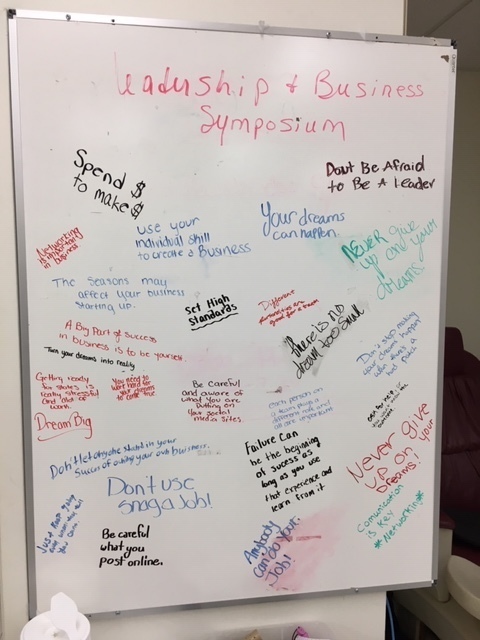 Leadership & Business
Symposium
Spend $
to make $
Dont Be Afraid
to Be A Leader
Your dreams
can happen.
Use your
individual skill
to create a Business
Networking
is important
in business
NEVER give
up on your
dreams.
The seasons may
affect your business
starting up.
Set High
standards
Different
good for a team
there is no
dream too small
A Big Part of Success
in business is to be yourself.
Turn your dreams into reality
Don't stop making
your dream happen
Getting ready
for states is
really stressful
and alot of
work.
You need to
work hard for
your dreams
to come true
Be Careful
and aware of
what you Are
putting on
your social
media sites.
each person on
a team plays a
different role and
all are important
Dream Big
Never give
up on your
dreams!
Failure Can
be the beginning
of success as
long as you use
that experience and
learn from it
in your
your own business.
Don't use
snagajob!
Comunication
is Key
#Networkin#
Be careful
what you
post online.
Anybody
can do your
Job!